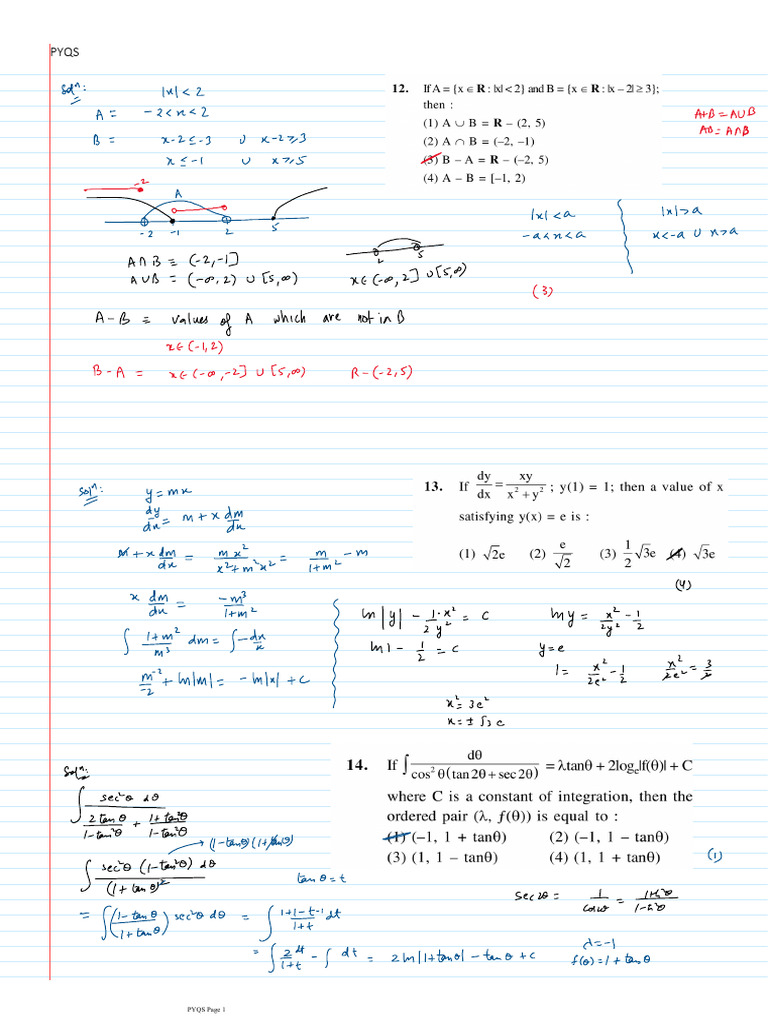 PYQS
Solⁿ:
|x| < 2
A = -2<x<2
B = x-2≤-3 ∪ x-2≥3
x≤-1 ∪ x≥5
12. If A = {x ∈ R : |x| < 2} and B = {x ∈ R : |x – 2| ≥ 3};
then :
(1) A ∪ B = R – (2, 5)
(2) A ∩ B = (–2, –1)
(3) B – A = R – (–2, 5)
(4) A – B = [–1, 2)
A+B = A∪B
AB = A∩B
-2
A
-2 -1 2 5
|x|<a
-a<x<a
|x|>a
x<-a ∪ x>a
A∩B = (-2,-1]
A∪B = (-∞,2) ∪ [5,∞)
2 5
x∈(-∞,2] ∪ [5,∞)
(3)
A-B = values of A which are not in B
x∈(-1,2)
B-A = x∈(-∞,-2] ∪ [5,∞) R-(-2,5)
13. If dy/dx = xy/(x² + y²) ; y(1) = 1; then a value of x
satisfying y(x) = e is :
(1) √2e (2) e/√2 (3) 1/2 √3e (4) √3e
(4)
Solⁿ:
y = mx
dy/dx = m + x dm/dx
m + x dm/dx = mx²/(x²+m²x²) = m/(1+m²) - m
x dm/dx = -m³/(1+m²)
∫ (1+m²)/m³ dm = ∫ -dx/x
m⁻²/-2 + ln|m| = -ln|x| + c
ln|y| - 1·x²/2y² = c
ln1 - 1/2 = c
ln y = x²/2y² - 1/2
y = e
1 = x²/2e² - 1/2 x²/2e² = 3/2
x² = 3e²
x = ± √3 e
14. If ∫ dθ/(cos²θ(tan2θ + sec2θ)) = λtanθ + 2logₑ|f(θ)| + C
where C is a constant of integration, then the
ordered pair (λ, ƒ(θ)) is equal to :
(1) (–1, 1 + tanθ) (2) (–1, 1 – tanθ)
(3) (1, 1 – tanθ) (4) (1, 1 + tanθ)
(1)
Solⁿ:
∫ sec²θ dθ / (2tanθ/(1-tan²θ) + (1+tan²θ)/(1-tan²θ))
(1-tanθ)(1+tanθ)
∫ sec²θ (1-tan²θ) dθ / (1+tanθ)²
tanθ = t
= ∫ ((1-tanθ)/(1+tanθ)) sec²θ dθ = ∫ (1+1-t-1)/(1+t) dt
= ∫ 2dt/(1+t) - ∫ dt = 2ln|1+tanθ| - tanθ + c
λ = -1
f(θ) = 1 + tanθ
PYQS Page 1